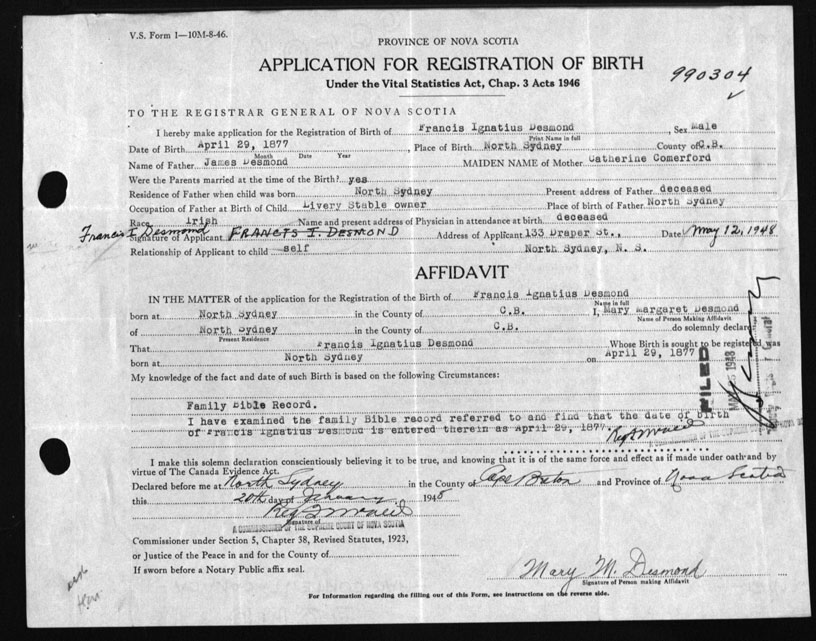 V.S. Form 1—10M-8-46.
PROVINCE OF NOVA SCOTIA
APPLICATION FOR REGISTRATION OF BIRTH
990304
Under the Vital Statistics Act, Chap. 3 Acts 1946
TO THE REGISTRAR GENERAL OF NOVA SCOTIA
I hereby make application for the Registration of Birth of Francis Ignatius Desmond, Sex Male
Print Name in full
Date of Birth April 29, 1877, Place of Birth North Sydney County of C.B.
Month Date Year
Name of Father James Desmond MAIDEN NAME of Mother Catherine Comerford
Were the Parents married at the time of the Birth? yes
Residence of Father when child was born North Sydney Present address of Father deceased
Occupation of Father at Birth of Child Livery Stable owner Place of birth of Father North Sydney
Race Irish Name and present address of Physician in attendance at birth deceased
Francis I Desmond
Signature of Applicant FRANCIS I. DESMOND Address of Applicant 133 Draper St., Date May 12, 1948
Relationship of Applicant to child self North Sydney, N. S.
AFFIDAVIT
IN THE MATTER of the application for the Registration of the Birth of Francis Ignatius Desmond
Name in full
born at North Sydney in the County of C.B. I, Mary Margaret Desmond
Name of Person Making Affidavit
of North Sydney in the County of C.B. do solemnly declare
Present Residence
That Francis Ignatius Desmond Whose Birth is sought to be registered was
born at North Sydney on April 29, 1877
FILED
1948
My knowledge of the fact and date of such Birth is based on the following Circumstances:
Family Bible Record.
I have examined the family Bible record referred to and find that the date of birth
of Francis Ignatius Desmond is entered therein as April 29, 1877
I make this solemn declaration conscientiously believing it to be true, and knowing that it is of the same force and effect as if made under oath and by
virtue of The Canada Evidence Act.
Declared before me at North Sydney in the County of Cape Breton and Province of Nova Scotia
this 20th day of January 1948
Signature of
A COMMISSIONER OF THE SUPREME COURT OF NOVA SCOTIA
Commissioner under Section 5, Chapter 38, Revised Statutes, 1923,
or Justice of the Peace in and for the County of
If sworn before a Notary Public affix seal.
Mary M. Desmond
Signature of Person making Affidavit
For Information regarding the filling out of this Form, see instructions on the reverse side.